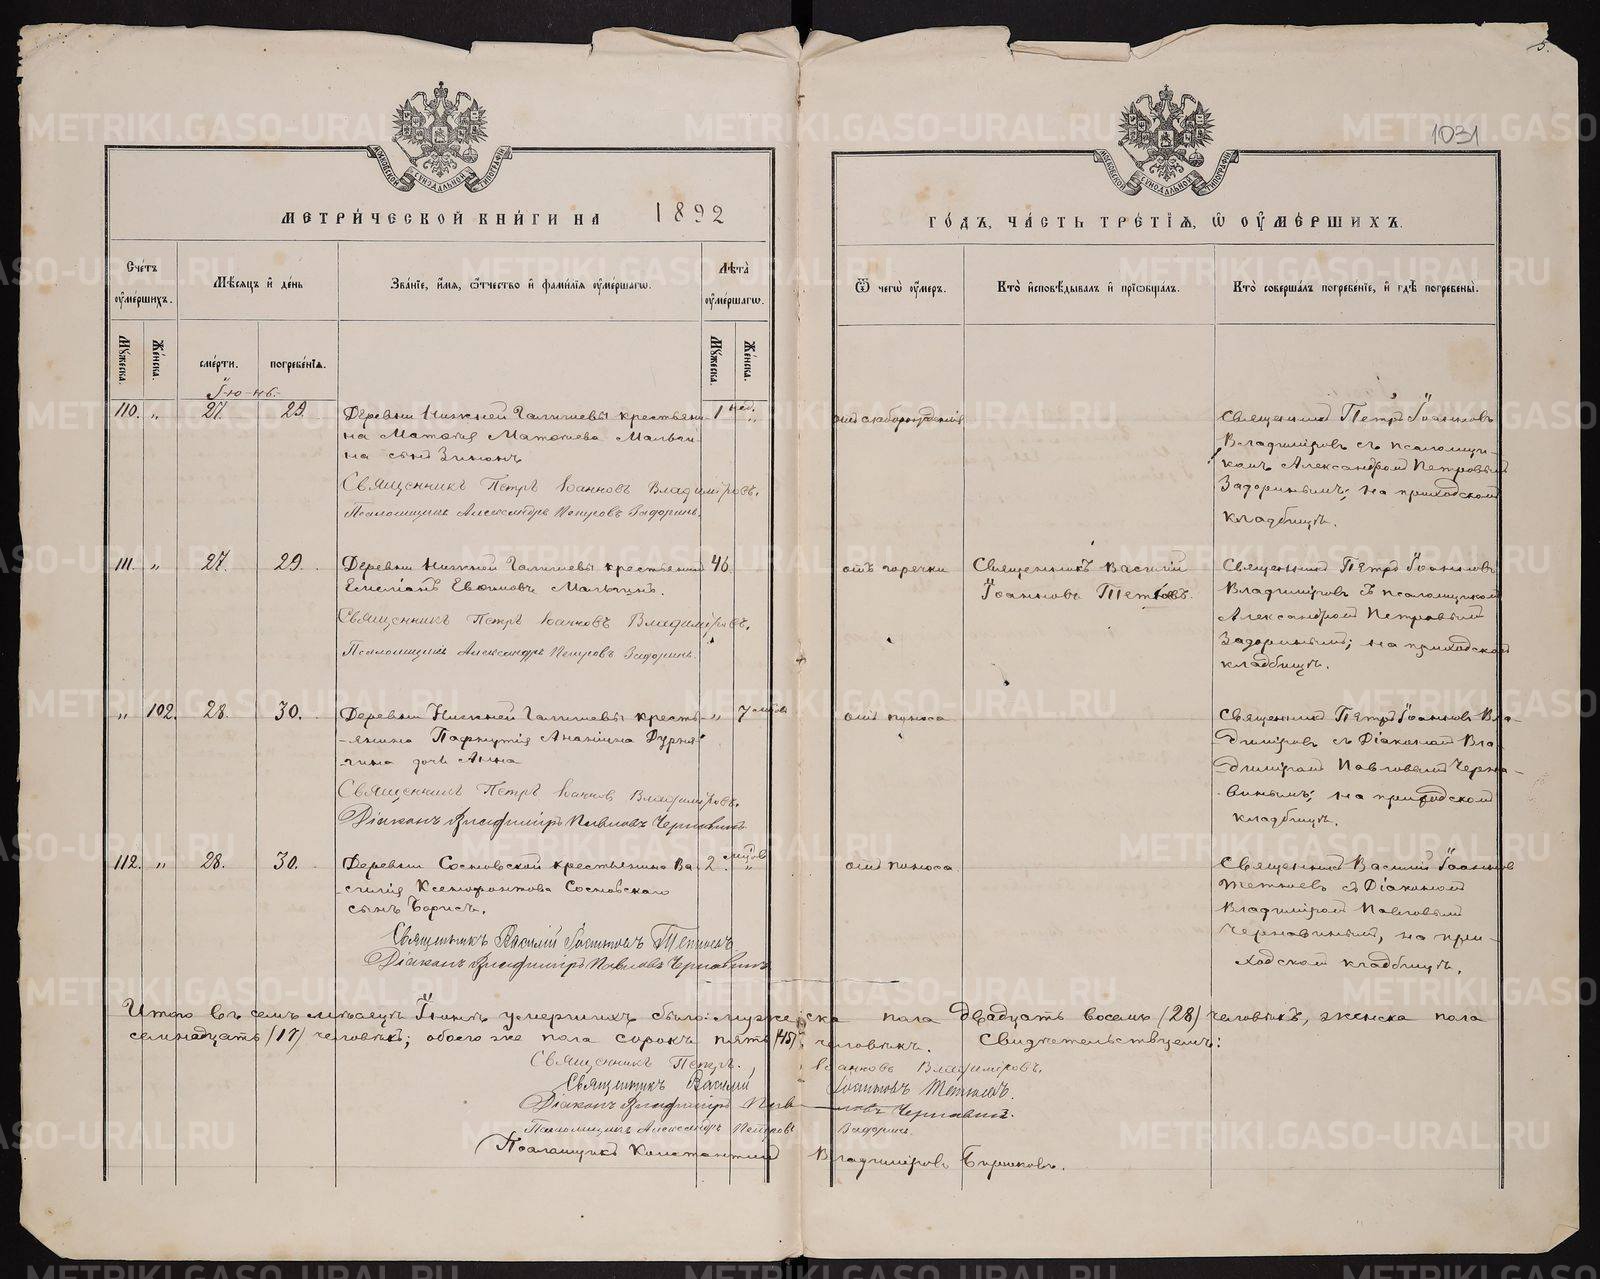 5.
1031
МОСКОВСКОЙ СѴНОДАЛЬНОЙ ТИПОГРАФІИ
МОСКОВСКОЙ СѴНОДАЛЬНОЙ ТИПОГРАФІИ
МЕТРИ́ЧЕСКОЙ КНИ́ГИ НА 1892
ГО́ДЪ, ЧА́СТЬ ТРЕ́ТІЯ, Ѡ ОУ҆МЕ́РШИХЪ.
Сче́тъ оу҆ме́ршихъ.
Мѣ́сяцъ и҆ де́нь
Зва́нїе, и҆́мя, ѻ҆́тчество и҆ фами́лїя оу҆ме́ршагѡ.
Лѣ́та оу҆ме́ршагѡ.
Ѿ чегѡ̀ оу҆́меръ.
Кто̀ и҆сповѣ́дывалъ и҆ прїѡбща́лъ.
Кто̀ соверша́лъ погребе́нїе, и҆ гдѣ̀ погребены̀.
Мꙋ́жеска.
Же́нска.
сме́рти.
погребе́нїя.
Мꙋ́жеска.
Же́нска.
Іюнь.
110. „ 27. 29. Деревни Нижней Галишевы крестьяни- 1 нед. „
на Матѳея Матѳиева Мальги-
на сынъ Зинонъ
Священникъ Петръ Іоанновъ Владиміровъ.
Псаломщикъ Александръ Петровъ Задоринъ.
отъ слаборожденія
Священникъ Петръ Іоанновъ
Владиміровъ съ псаломщи-
комъ Александромъ Петровымъ
Задоринымъ; на приходскомъ
кладбищѣ.
111. „ 27. 29. Деревни Нижней Галишевы крестьянинъ 46.
Емеліанъ Евѳимовъ Мальгинъ.
Священникъ Петръ Іоанновъ Владиміровъ.
Псаломщикъ Александръ Петровъ Задоринъ.
отъ горячки
Священникъ Василій
Іоанновъ Тетюевъ.
Священникъ Петръ Іоанновъ
Владиміровъ съ псаломщикомъ
Александромъ Петровымъ
Задоринымъ; на приходскомъ
кладбищѣ.
„ 102. 28. 30. Деревни Нижней Галишевы кресть- „ 7 мѣсяцовъ
-янина Пафнутія Ананіина
дочь Анна
Священникъ Петръ Іоанновъ Владиміровъ.
Діаконъ Владиміръ Павловъ Чернавинъ
отъ поноса
Священникъ Петръ Іоанновъ Вла-
-диміровъ съ Діакономъ Вла-
-диміромъ Павловымъ Черна-
-винымъ; на приходскомъ
кладбищѣ.
112. „ 28. 30. Деревни Сосновской крестьянина Ва- 2. мѣсяцовъ „
-силія Ксенофонтова Сосновскаго
сынъ Борисъ.
Священникъ Василій Іоанновъ Тетюевъ
Діаконъ Владиміръ Павловъ Чернавинъ
отъ поноса
Священникъ Василій Іоанновъ
Тетюевъ съ Діакономъ
Владиміромъ Павловымъ
Чернавинымъ, на при-
ходскомъ кладбищѣ.
Итого въ семъ мѣсяцѣ Іюнѣ умершихъ было: мужеска пола двадцать восемь (28) человѣкъ, женска пола
семнадцать (17) человѣкъ; обоего же пола сорокъ пять (45) человѣкъ. Свидѣтельствуемъ:
Священникъ Петръ Іоанновъ Владиміровъ.
Священникъ Василій Іоанновъ Тетюевъ.
Діаконъ Владиміръ Павловъ Чернавинъ.
Псаломщикъ Александръ Петровъ Задоринъ
Псаломщикъ Константинъ Владиміровъ
METRIKI.GASO-URAL.RU